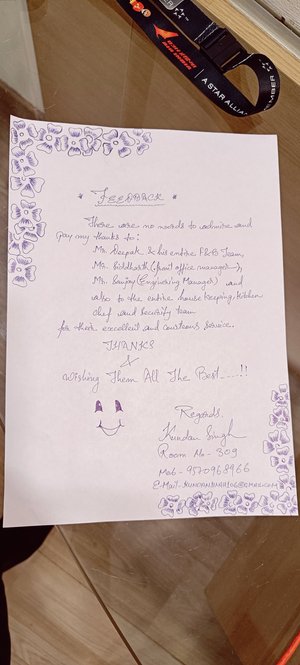 A STAR ALLIANCE MEMBER
* FEEDBACK *
There are no words to admire and
pay my thanks to:
Mr. Deepak & his entire F&B Team,
Mr. Siddharth (front office manager),
Mr. Sanjay (Engineering Manager) and
also to the entire house keeping, kitchen
chef and security team
for their excellent and courteous service.
THANKS
&
Wishing Them All The Best.....!!
Regards,
Kundan Singh
Room No - 309
Mob - 9570968966
E-Mail-